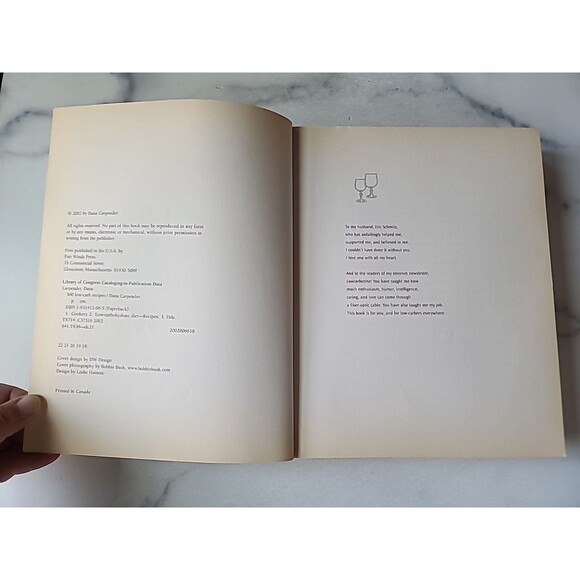 © 2002 by Dana Carpender
All rights reserved. No part of this book may be reproduced in any form
or by any means, electronic or mechanical, without prior permission in
writing from the publisher.
First published in the U.S.A. by
Fair Winds Press
33 Commercial Street
Gloucester, Massachusetts 01930-5089
Library of Congress Cataloging-in-Publication Data
Carpender, Dana
500 low-carb recipes / Dana Carpender.
p. cm.
ISBN 1-931412-06-5 (Paperback)
1. Cookery 2. Low-carbohydrate diet—Recipes. I. Title.
TX714 .C37316 2002
641.5'638—dc21
22 21 20 19 18
Cover design by DW Design
Cover photography by Bobbie Bush, www.bobbiebush.com
Design by Leslie Haimes
Printed in Canada
To my husband, Eric Schmitz,
who has unfailingly helped me,
supported me, and believed in me.
I couldn't have done it without you.
I love you with all my heart.
And to the readers of my Internet newsletter,
Lowcarbezine! You have taught me how
much enthusiasm, humor, intelligence,
caring, and love can come through
a fiber-optic cable. You have also taught me my job.
This book is for you, and for low-carbers everywhere.